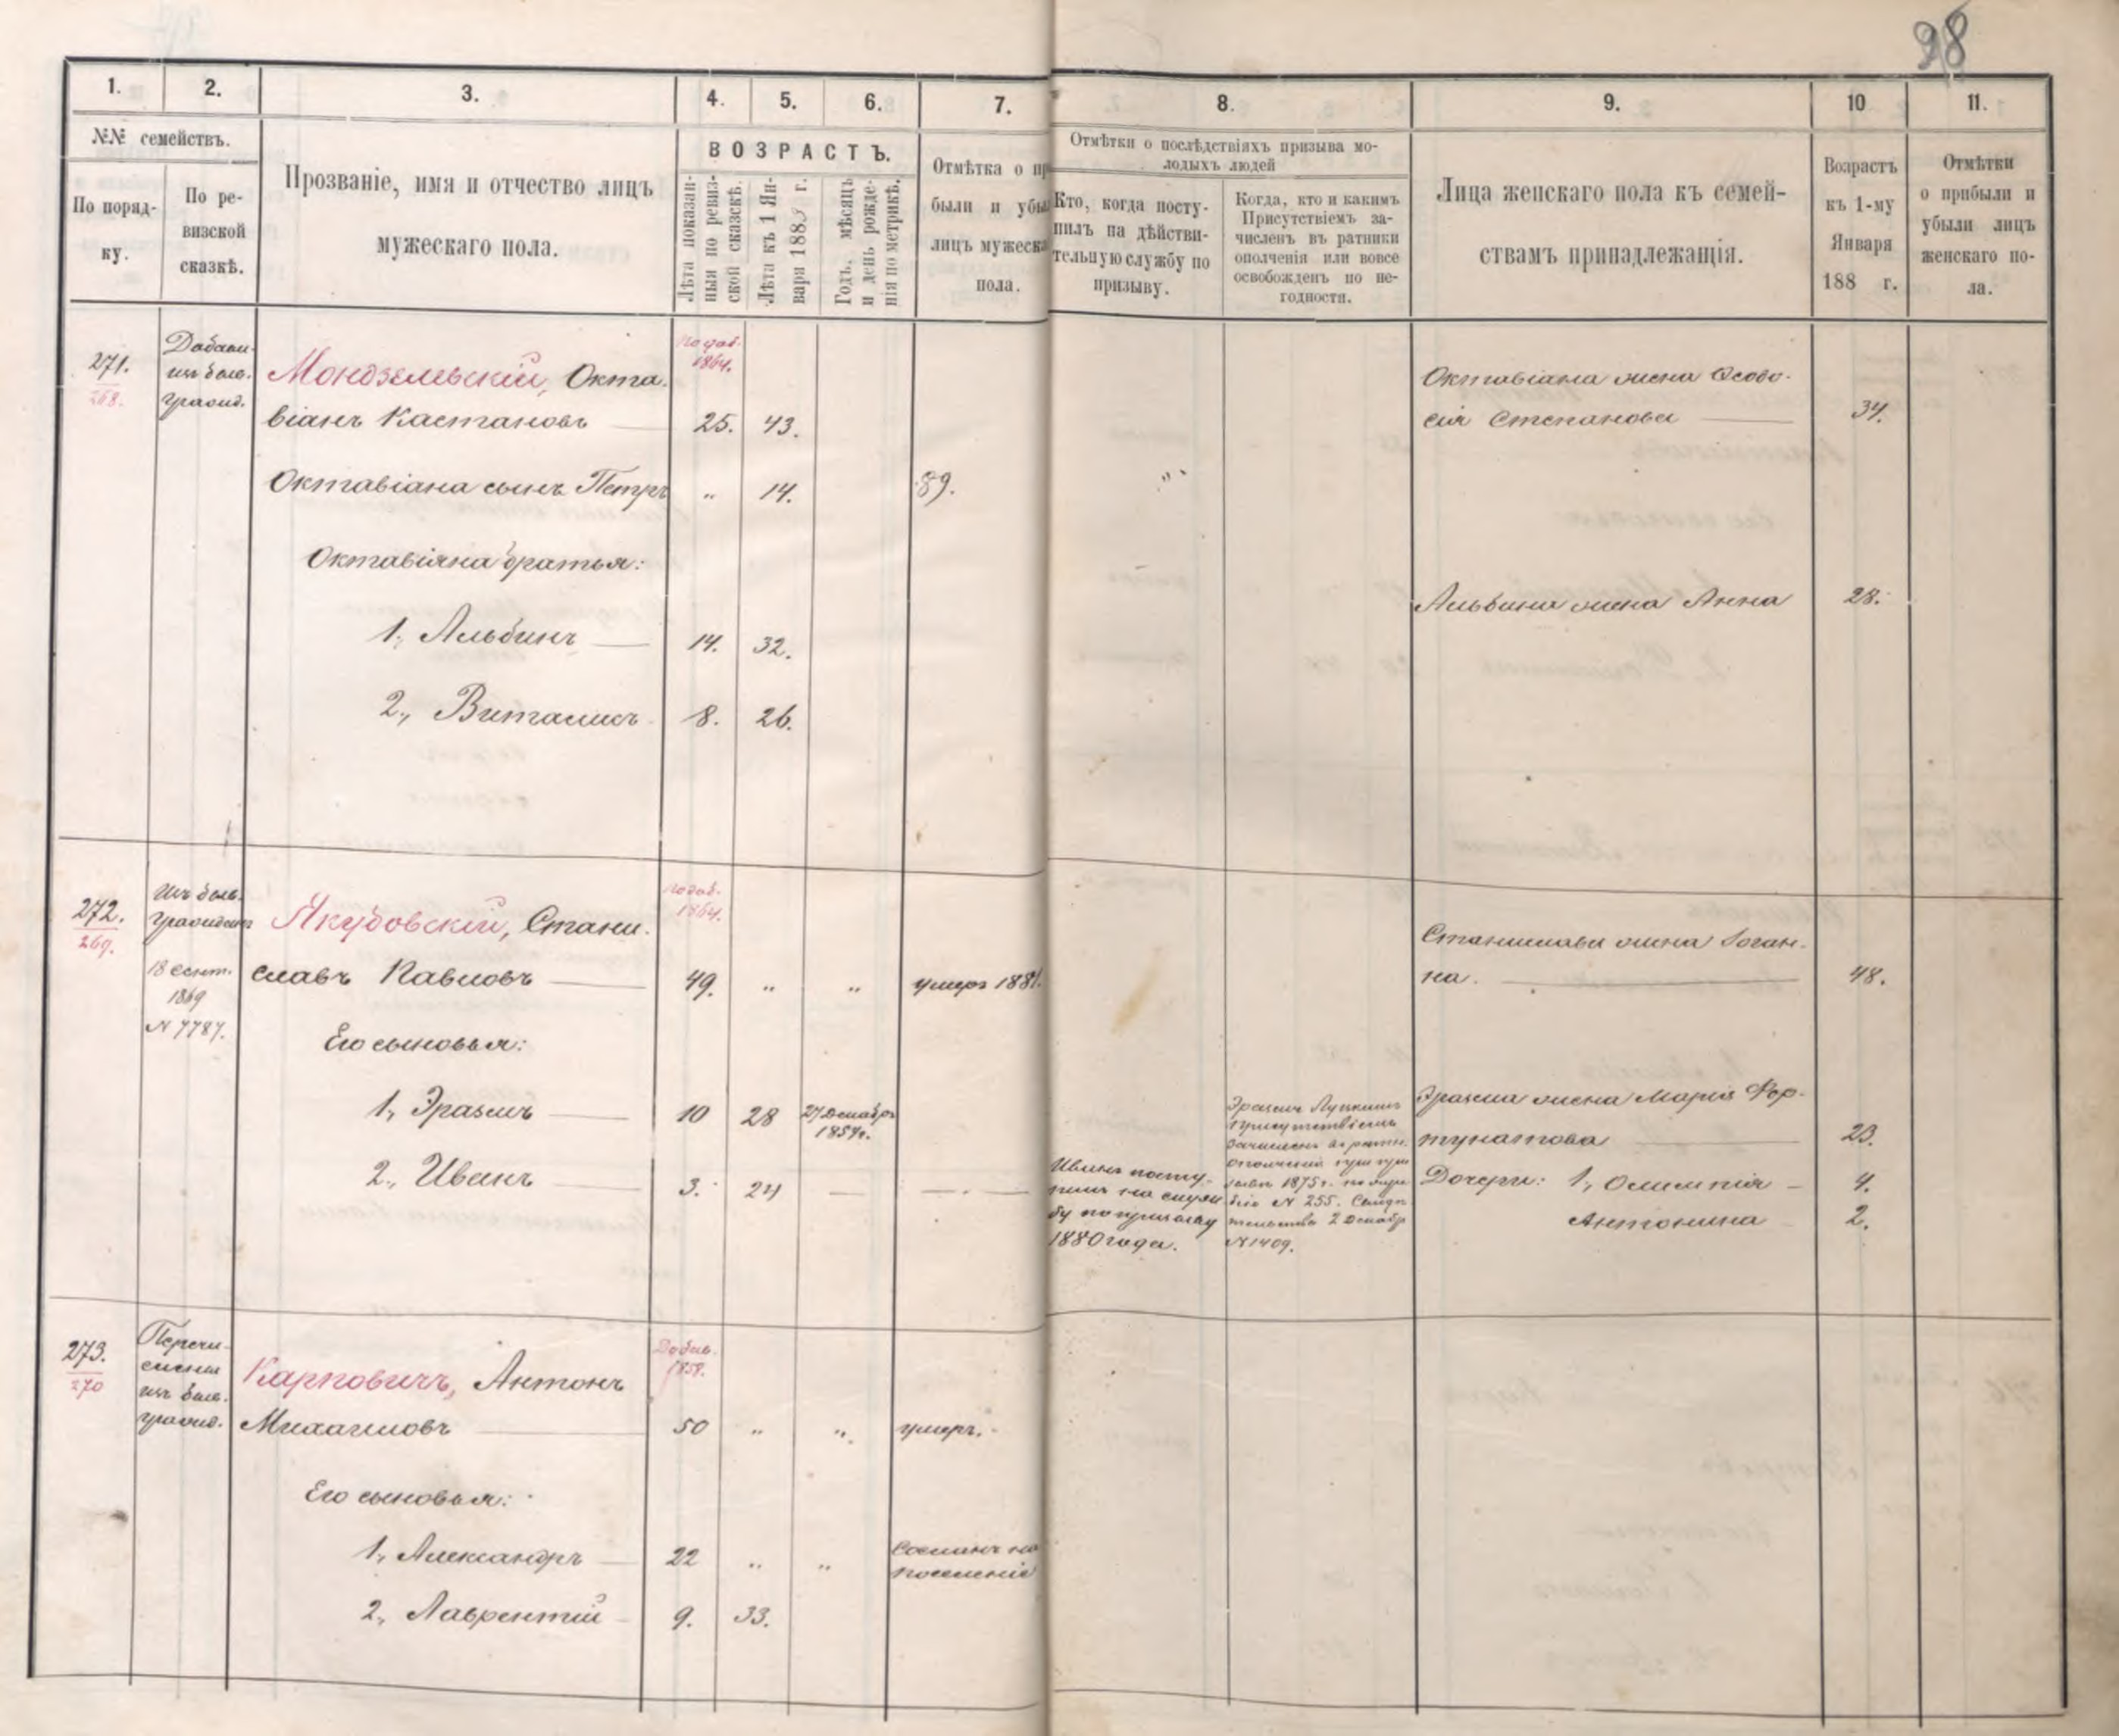 98
1.
2.
3.
4.
5.
6.
7.
8.
9.
10
11.
№№ семействъ.
По поряд-
ку.
По ре-
визской
сказкѣ.
Прозваніе, имя и отчество лицъ
мужескаго пола.
ВОЗРАСТЪ.
Лѣта показан-
ныя по ревиз-
ской сказкѣ.
Лѣта къ 1 Ян-
варя 1883 г.
Годъ, мѣсяцъ
и день рожде-
нія по метрикѣ.
Отмѣтка о пр
были и убы
лицъ мужеска
пола.
Отмѣтки о послѣдствіяхъ призыва мо-
лодыхъ людей
Кто, когда посту-
пилъ на дѣйстви-
тельную службу по
призыву.
Когда, кто и какимъ
Присутствіемъ за-
численъ въ ратники
ополченія или вовсе
освобожденъ по не-
годности.
Лица женскаго пола къ семей-
ствамъ принадлежащія.
Возрастъ
къ 1-му
Января
188 г.
Отмѣтки
о прибыли и
убыли лицъ
женскаго по-
ла.
271.
268.
изъ быв.
гражд.
Мондзелевскій, Окта-
1864.
віанъ Каетановъ 25. 43.
Октавіана жена Ѳеодо-
сія Степанова 34.
Октавіана сынъ Петръ " 14. 89. "
Октавіяна братья:
1, Альбинъ 14. 32.
Альбина жена Анна 28.
2., Виталисъ 8. 26.
272.
269.
изъ быв.
гражданъ
18 Сент.
1869
N 7787.
Якубовскій, Стани-
1864.
славъ Павловъ 49. " " умеръ 1881.
Станислава жена Іоган-
на. 48.
Его сыновья:
1, Эразмъ 10 28 27 Декабря
1854г.
Эразмъ Луцкимъ
присутствіемъ
зачисленъ въ ратн.
ополченія при при
зывѣ 1875г. по жре
бію N 255. Свидѣ
тельство 2 Декабр
N 1409.
Эразма жена Марія Фор-
тунатова 23.
2., Иванъ 3. 24
Иванъ посту-
пилъ на служ
бу по призыву
1880 года.
Дочери: 1, Олимпія 4.
Антонина 2.
273.
270
Перечи-
слены
изъ быв.
гражд.
Карповичъ, Антонъ
Добав.
1858.
Михаиловъ 50 " " умеръ.
Его сыновья:
1, Александръ 22 " " Сосланъ на
поселеніе
2, Лаврентій 9. 33.